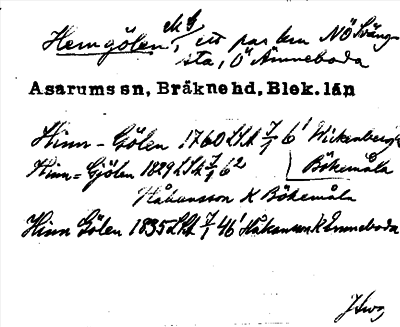 Hemgölen, ett par km NÖ Sväng-
sta, Ö Ämneboda
Asarums sn, Bräkne hd, Blek. län
Hinn-Gölen 1760 LSA 7/1 6¹ Wickenberg K
Hinn=Gjölen 1829 LSA 7/1 6² Bökemåla
Håkansson K Bökemåla
Hinn Gölen 1835 LSA 7/1 46¹ Håkansson K Ämneboda